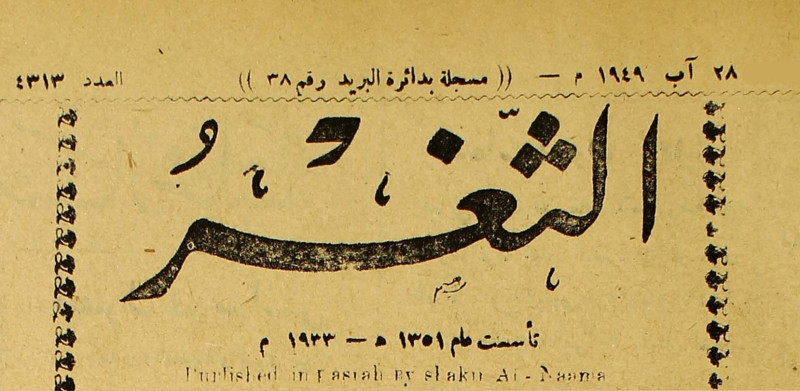 ٢٨ آب ١٩٤٩ م — (( مسجلة بدائرة البريد رقم ٣٨ )) العدد ٤٣١٣
الثَّغْرُ
تأسست عام ١٣٥١ ه — ١٩٣٣ م
Published in Basrah by Shakir An-Naama